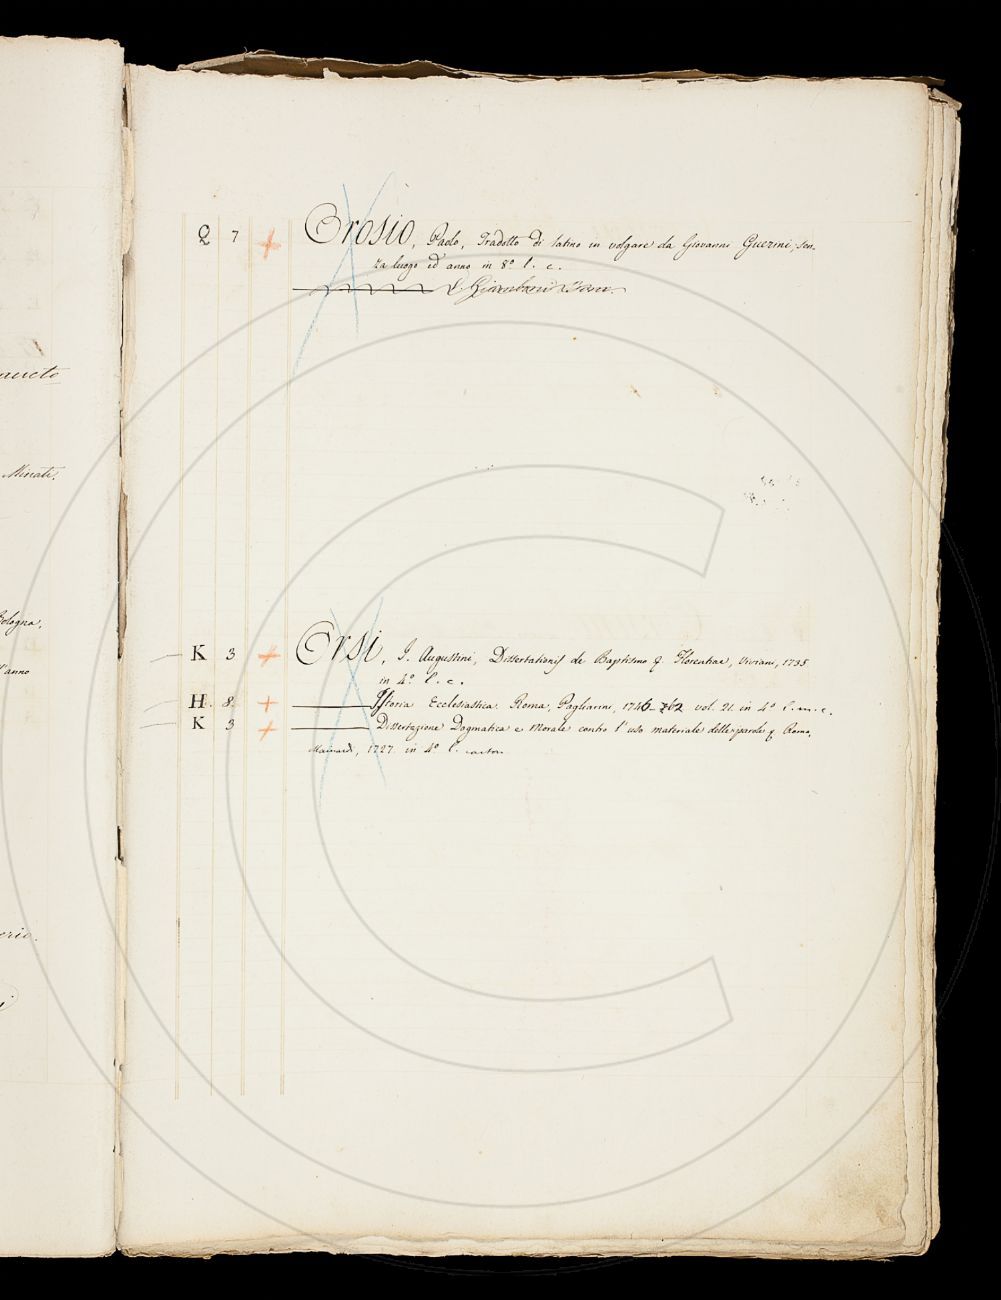 aucto
Minati.
Bologna,
l'anno
erio.
Q 7 + Orosio, Paolo, Tradotto di latino in volgare da Giovanni Guerini, sen-
za luogo ed anno in 8º l. c.
K 3 + Orsi, J. Augustini, Dissertationis de Baptismo q. Florentiae, Viviani, 1735
in 4º l. c.
H. 8. + Istoria Ecclesiastica. Roma, Pagliarini, 1746 vol. 21. in 4º l. m. c.
K 3 + Dissertazione Dogmatica e Morale contro l'uso materiale delle parole q. Roma,
Mainardi, 1727. in 4º l.